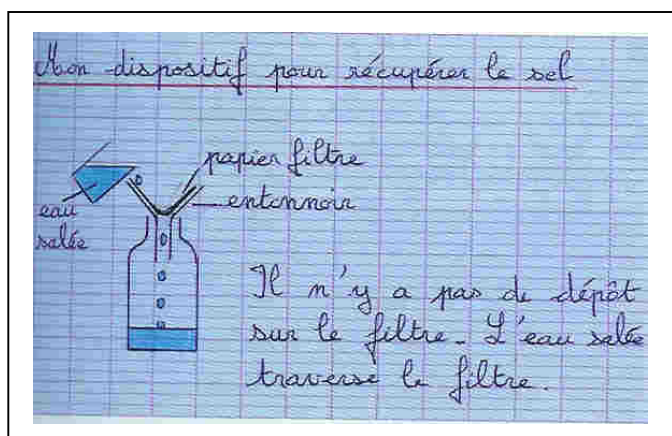 Mon dispositif pour récupérer le sel
papier filtre
entonnoir
eau
salée
Il n'y a pas de dépôt
sur le filtre. L'eau salée
traverse le filtre.